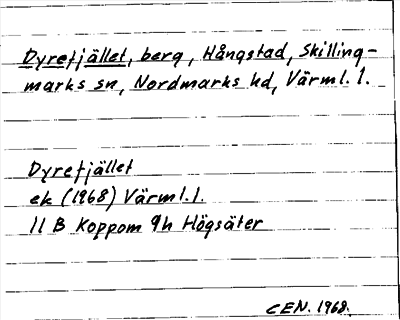 Dyrefjället, berg, Hångstad, Skilling-
marks sn, Nordmarks hd, Värml. l.
Dyrefjället
ek (1968) Värml. l.
11 B Koppom 9h Högsäter
CEN. 1968.